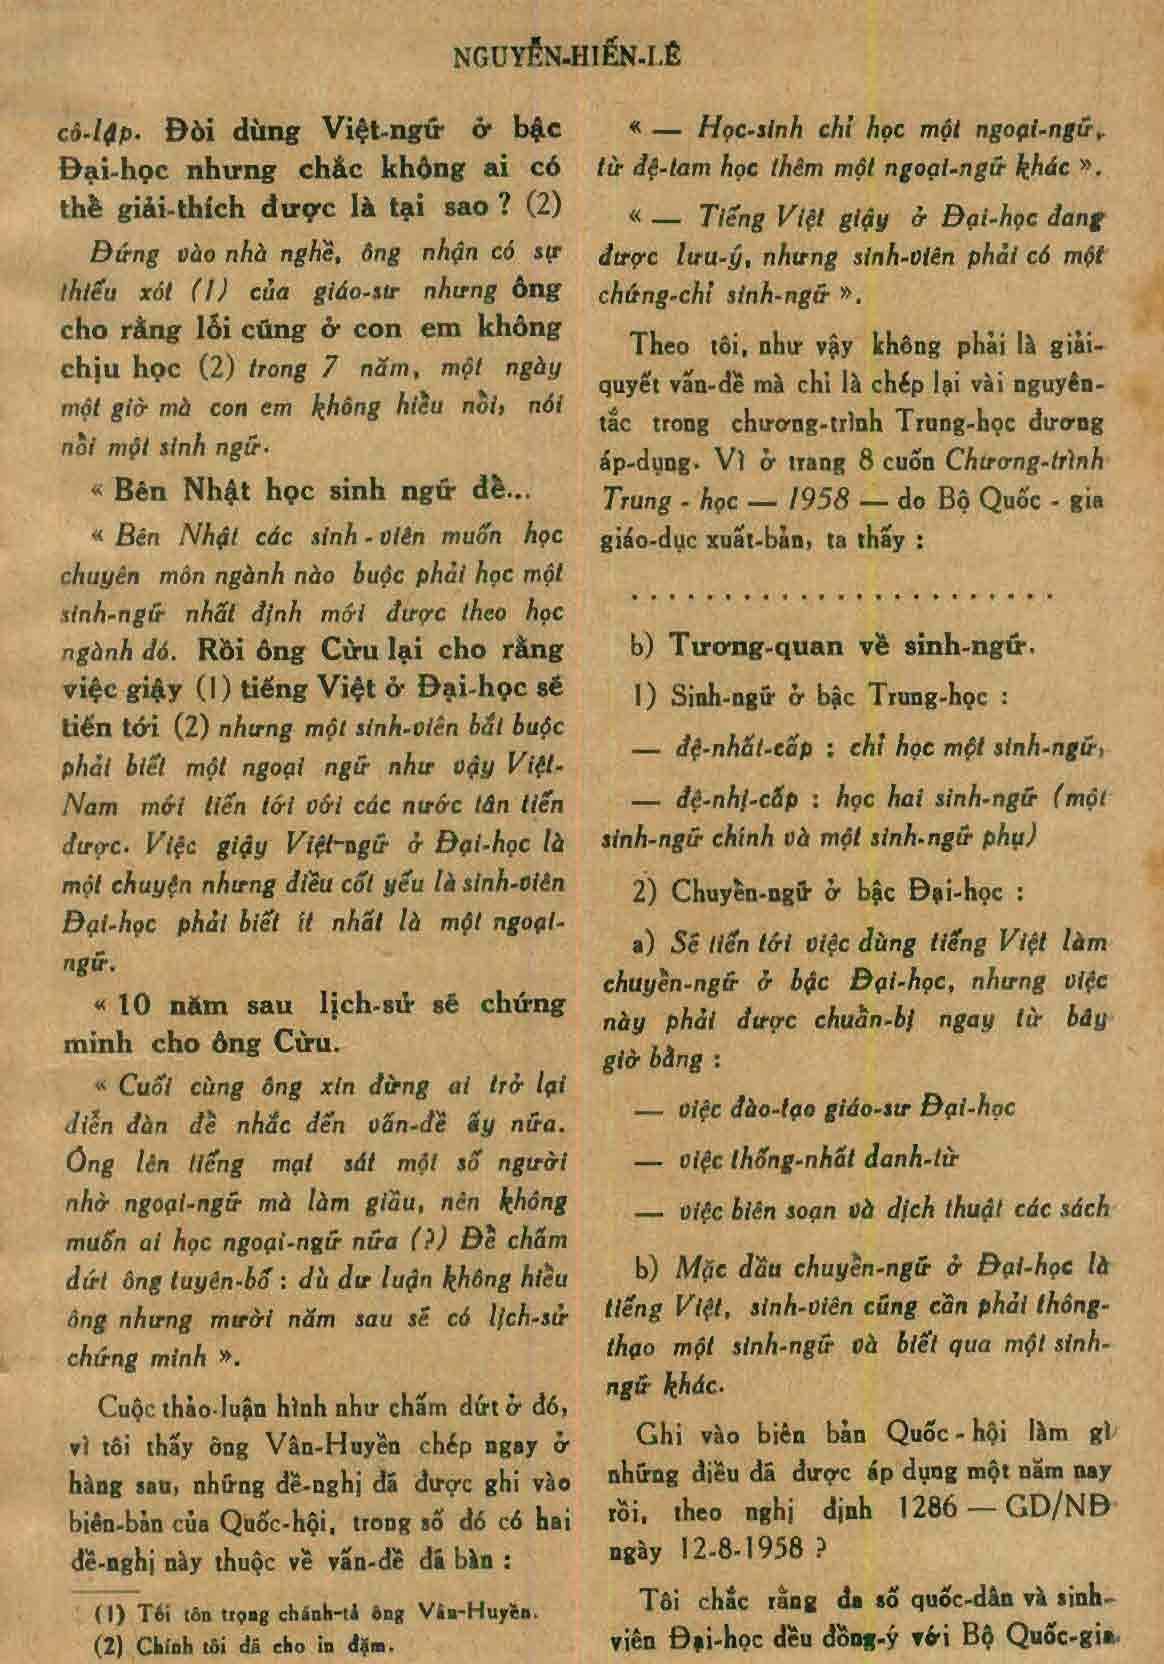 NGUYỄN-HIẾN-LÊ
cô-lập. Đòi dùng Việt-ngữ ở bậc
Đại-học nhưng chắc không ai có
thể giải-thích được là tại sao ? (2)
Đứng vào nhà nghề, ông nhận có sự
thiếu xót (1) của giáo-sư nhưng ông
cho rằng lỗi cũng ở con em không
chịu học (2) trong 7 năm, một ngày
một giờ mà con em không hiểu nổi, nói
nổi một sinh ngữ.
« Bên Nhật học sinh ngữ để...
« Bên Nhật các sinh-viên muốn học
chuyên môn ngành nào buộc phải học một
sinh-ngữ nhất định mới được theo học
ngành đó. Rồi ông Cừu lại cho rằng
việc giậy (1) tiếng Việt ở Đại-học sẽ
tiến tới (2) nhưng một sinh-viên bắt buộc
phải biết một ngoại ngữ như vậy Việt-
Nam mới tiến tới với các nước tân tiến
được. Việc giậy Việt-ngữ ở Đại-học là
một chuyện nhưng điều cốt yếu là sinh-viên
Đại-học phải biết ít nhất là một ngoại-
ngữ.
« 10 năm sau lịch-sử sẽ chứng
minh cho ông Cừu.
« Cuối cùng ông xin đừng ai trở lại
diễn đàn để nhắc đến vấn-đề ấy nữa.
Ông lên tiếng mạt sát một số người
nhờ ngoại-ngữ mà làm giầu, nên không
muốn ai học ngoại-ngữ nữa (?) Để chấm
dứt ông tuyên-bố : dù dư luận không hiểu
ông nhưng mười năm sau sẽ có lịch-sử
chứng minh ».
Cuộc thảo-luận hình như chấm dứt ở đó,
vì tôi thấy ông Vân-Huyền chép ngay ở
hàng sau, những đề-nghị đã được ghi vào
biên-bản của Quốc-hội, trong số đó có hai
đề-nghị này thuộc về vấn-đề đã bàn :
(1) Tôi tôn trọng chánh-tả ông Vân-Huyền.
(2) Chính tôi đã cho in đặm.
« — Học-sinh chỉ học một ngoại-ngữ,
từ đệ-tam học thêm một ngoại-ngữ khác ».
« — Tiếng Việt giậy ở Đại-học đang
được lưu-ý, nhưng sinh-viên phải có một
chứng-chỉ sinh-ngữ ».
Theo tôi, như vậy không phải là giải-
quyết vấn-đề mà chỉ là chép lại vài nguyên-
tắc trong chương-trình Trung-học đương
áp-dụng. Vì ở trang 8 cuốn Chương-trình
Trung - học — 1958 — do Bộ Quốc - gia
giáo-dục xuất-bản, ta thấy :
. . . . . . . . . . . . . . . . . . . . . .
b) Tương-quan về sinh-ngữ.
1) Sinh-ngữ ở bậc Trung-học :
— đệ-nhất-cấp : chỉ học một sinh-ngữ,
— đệ-nhị-cấp : học hai sinh-ngữ (một
sinh-ngữ chính và một sinh-ngữ phụ)
2) Chuyển-ngữ ở bậc Đại-học :
a) Sẽ tiến tới việc dùng tiếng Việt làm
chuyển-ngữ ở bậc Đại-học, nhưng việc
này phải được chuẩn-bị ngay từ bây
giờ bằng :
— việc đào-tạo giáo-sư Đại-học
— việc thống-nhất danh-từ
— việc biên soạn và dịch thuật các sách
b) Mặc dầu chuyển-ngữ ở Đại-học là
tiếng Việt, sinh-viên cũng cần phải thông-
thạo một sinh-ngữ và biết qua một sinh-
ngữ khác.
Ghi vào biên bản Quốc-hội làm gì
những điều đã được áp dụng một năm nay
rồi, theo nghị định 1286 — GD/NĐ
ngày 12-8-1958 ?
Tôi chắc rằng đa số quốc-dân và sinh-
viên Đại-học đều đồng-ý với Bộ Quốc-gia